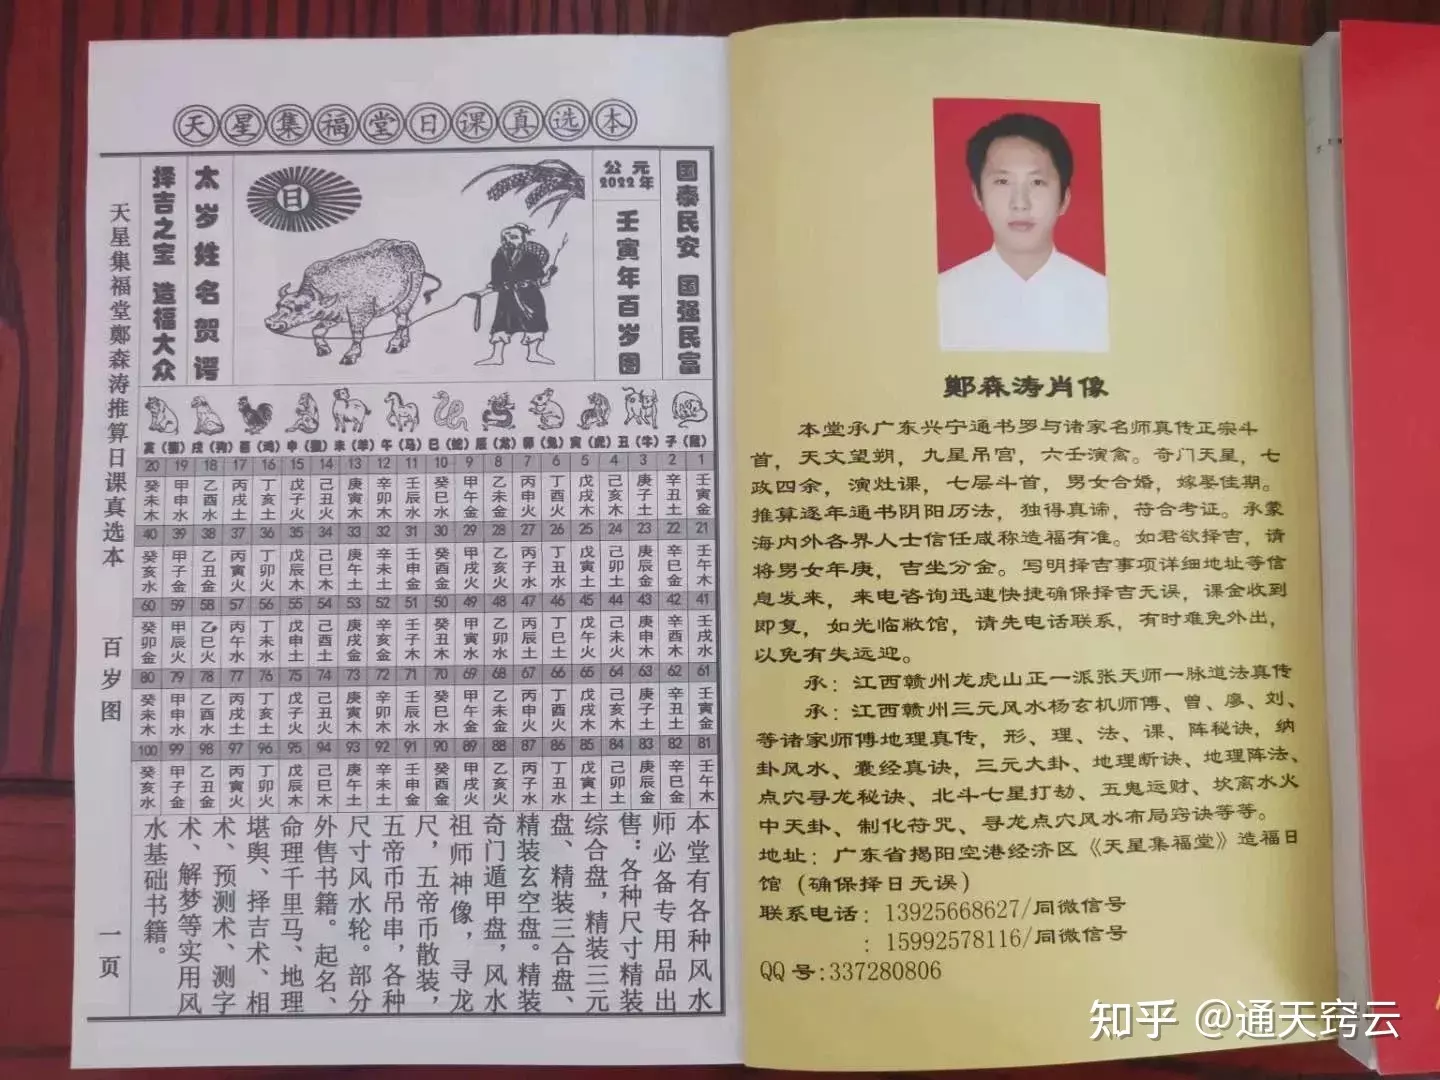 天星集福堂日课真选本
国泰民安 国强民富
公元
2022年
壬寅年百岁图
日
太岁姓名贺谔
择吉之宝 造福大众
天星集福堂鄭森涛推算日课真选本 百岁图 一页
亥(猪)戌(狗)酉(鸡)申(猴)未(羊)午(马)巳(蛇)辰(龙)卯(兔)寅(虎)丑(牛)子(鼠)
20 19 18 17 16 15 14 13 12 11 10 9 8 7 6 5 4 3 2 1
癸未木 甲申水 乙酉水 丙戌土 丁亥土 戊子火 己丑火 庚寅木 辛卯木 壬辰水 癸巳水 甲午金 乙未金 丙申火 丁酉火 戊戌木 己亥木 庚子土 辛丑土 壬寅金
40 39 38 37 36 35 34 33 32 31 30 29 28 27 26 25 24 23 22 21
癸亥水 甲子金 乙丑金 丙寅火 丁卯火 戊辰木 己巳木 庚午土 辛未土 壬申金 癸酉金 甲戌火 乙亥火 丙子水 丁丑水 戊寅土 己卯土 庚辰金 辛巳金 壬午木
60 59 58 57 56 55 54 53 52 51 50 49 48 47 46 45 44 43 42 41
癸卯金 甲辰火 乙巳火 丙午水 丁未水 戊申土 己酉土 庚戌金 辛亥金 壬子木 癸丑木 甲寅水 乙卯水 丙辰土 丁巳土 戊午火 己未火 庚申木 辛酉木 壬戌水
80 79 78 77 76 75 74 73 72 71 70 69 68 67 66 65 64 63 62 61
癸未木 甲申水 乙酉水 丙戌土 丁亥土 戊子火 己丑火 庚寅木 辛卯木 壬辰水 癸巳水 甲午金 乙未金 丙申火 丁酉火 戊戌木 己亥木 庚子土 辛丑土 壬寅金
100 99 98 97 96 95 94 93 92 91 90 89 88 87 86 85 84 83 82 81
癸亥水 甲子金 乙丑金 丙寅火 丁卯火 戊辰木 己巳木 庚午土 辛未土 壬申金 癸酉金 甲戌火 乙亥火 丙子水 丁丑水 戊寅土 己卯土 庚辰金 辛巳金 壬午木
本堂有各种风水
师必备专用品出
售：各种尺寸精装
综合盘，精装三元
盘、精装三合盘、
精装玄空盘。精装
奇门遁甲盘，风水
祖师神像，寻龙
尺，五帝币散装，
五帝币吊串，各种
尺寸风水轮。部分
外售书籍。起名、
命理千里马、地理
堪舆、择吉术、相
术、预测术、测字
术、解梦等实用风
水基础书籍。
鄭森涛肖像
本堂承广东兴宁通书罗与诸家名师真传正宗斗
首，天文望朔，九星吊宫，六壬演禽。奇门天星，七
政四余，演灶课，七层斗首，男女合婚，嫁娶佳期。
推算逐年通书阴阳历法，独得真谛，符合考证。承蒙
海内外各界人士信任咸称造福有准。如君欲择吉，请
将男女年庚，吉坐分金。写明择吉事项详细地址等信
息发来，来电咨询迅速快捷确保择吉无误，课金收到
即复，如光临敝馆，请先电话联系，有时难免外出，
以免有失远迎。
承：江西赣州龙虎山正一派张天师一脉道法真传
承：江西赣州三元风水杨玄机师傅、曾、廖、刘、
等诸家师傅地理真传，形、理、法、课、阵秘诀，纳
卦风水、囊经真诀，三元大卦、地理断诀、地理阵法、
点穴寻龙秘诀、北斗七星打劫、五鬼运财、坎离水火
中天卦、制化符咒、寻龙点穴风水布局窍诀等等。
地址：广东省揭阳空港经济区《天星集福堂》造福日
馆（确保择日无误）
联系电话：13925668627/同微信号
：15992578116/同微信号
QQ号:337280806
知乎 @通天窍云